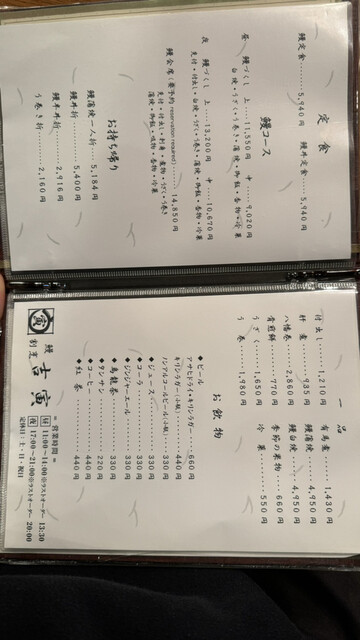 定食
鰻定食……5,940円
鰻丼定食……5,940円
鰻コース
昼 鰻づくし 上…11,550円 中…9,020円
白焼・うざく・う巻き・蒲焼・御飯・吸物・香物・冷菓
夜 鰻づくし 上…13,200円 中…10,670円
先付・付出し・白焼・うざく・う巻き・蒲焼・御飯・香物・冷菓
鰻会席(要予約 reservation required)……14,850円
先付・付出し・刺身・煮物・うざく・う巻き
蒲焼・御飯・吸物・香物・冷菓
お持ち帰り
鰻蒲焼一人折……5,184円
鰻丼折……5,400円
鰻丼丼折……2,916円
う巻き折……2,160円
一品
付出し……1,210円
肝煮……935円
八幡巻……2,860円
骨煎餅……770円
うざく……1,650円
う巻……1,980円
有馬煮……1,430円
鰻蒲焼……4,950円
鰻白焼……4,950円
季節の果物……660円
冷菓……550円
お飲物
◆ビール
アサヒドライ・キリンラガー…660円
キリンラガー(小瓶)……440円
ノンアルコールビール(小瓶)…330円
◆ジュース……330円
◆コーラ……330円
◆ジンジャーエール……330円
◆烏龍茶……330円
◆タンサン……220円
◆コーヒー……440円
◆紅茶……440円
鰻割烹 吉寅
=営業時間=
昼 11:00~14:00※ラストオーダー 13:30
夜 17:00~21:00※ラストオーダー 20:00
定休日:土・日・祝日